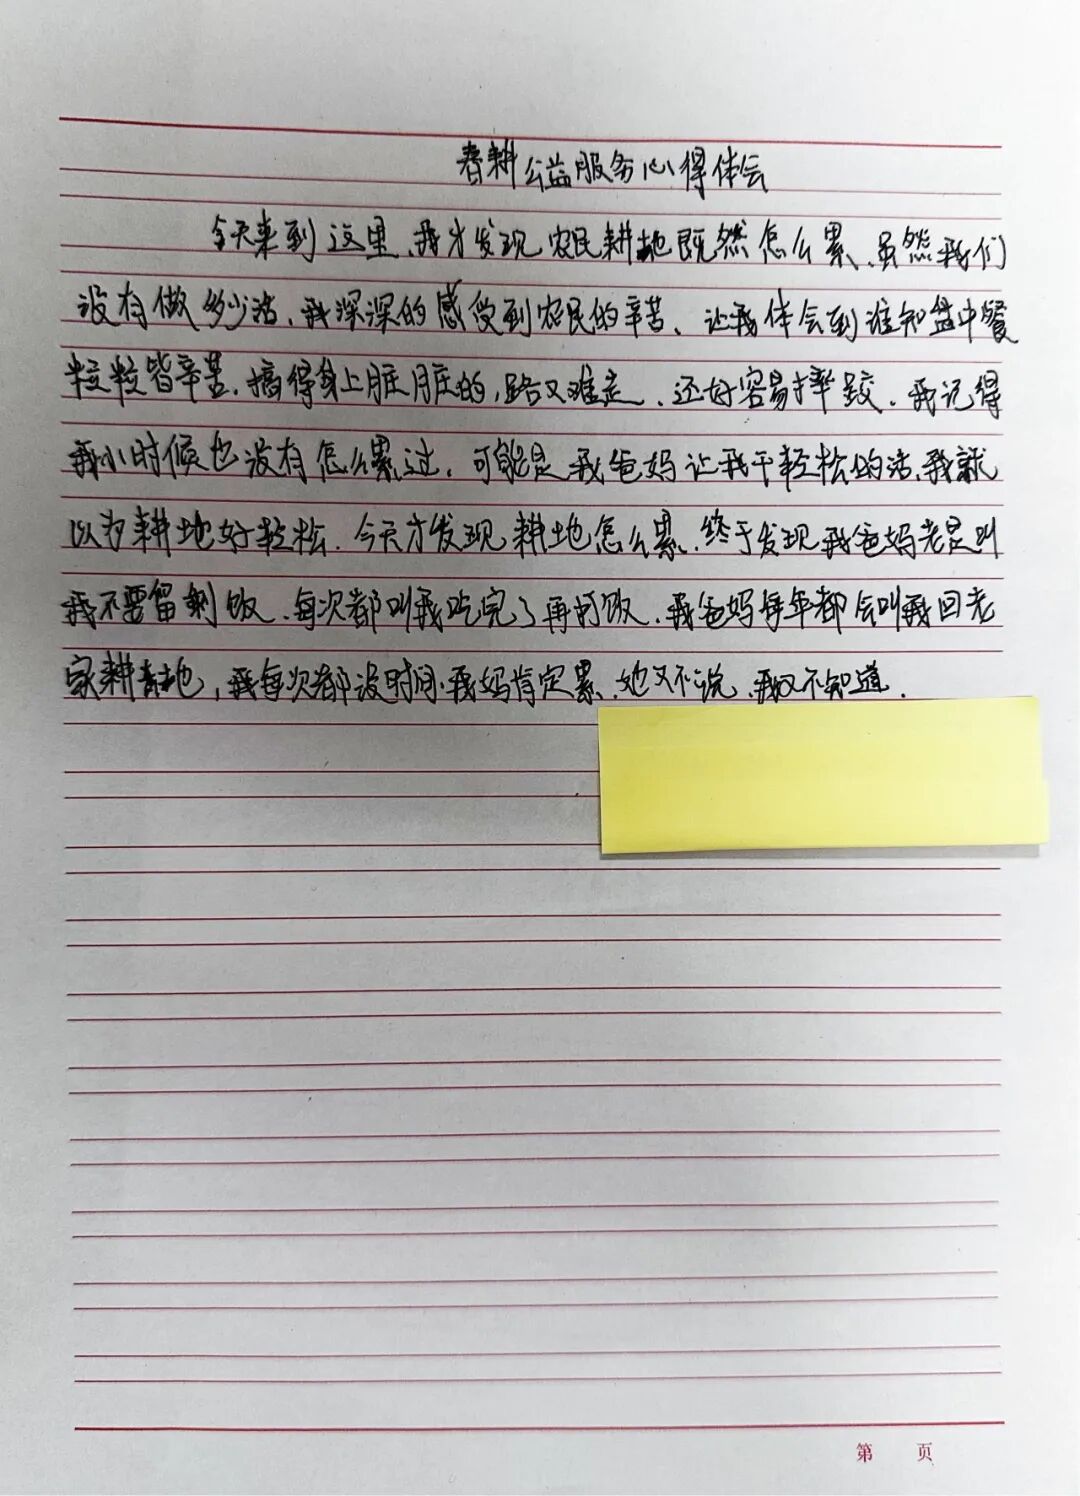 春耕公益服务心得体会
今天来到这里、我才发现农民耕地既然怎么累、虽然我们
没有做多少活、我深深的感受到农民的辛苦、让我体会到谁知盘中餐
粒粒皆辛苦.搞得身上脏脏的,路又难走、还好容易摔跤.我记得
我小时候也没有怎么累过.可能是我爸妈让我干轻松的活、我就
以为耕地好轻松.今天才发现耕地怎么累、终于发现我爸妈老是叫
我不要留剩饭、每次都叫我吃完了再打饭、我爸妈每年都会叫我回老
家耕地,我每次都没时间.我妈肯定累、她又不说、我又不知道.
第 页